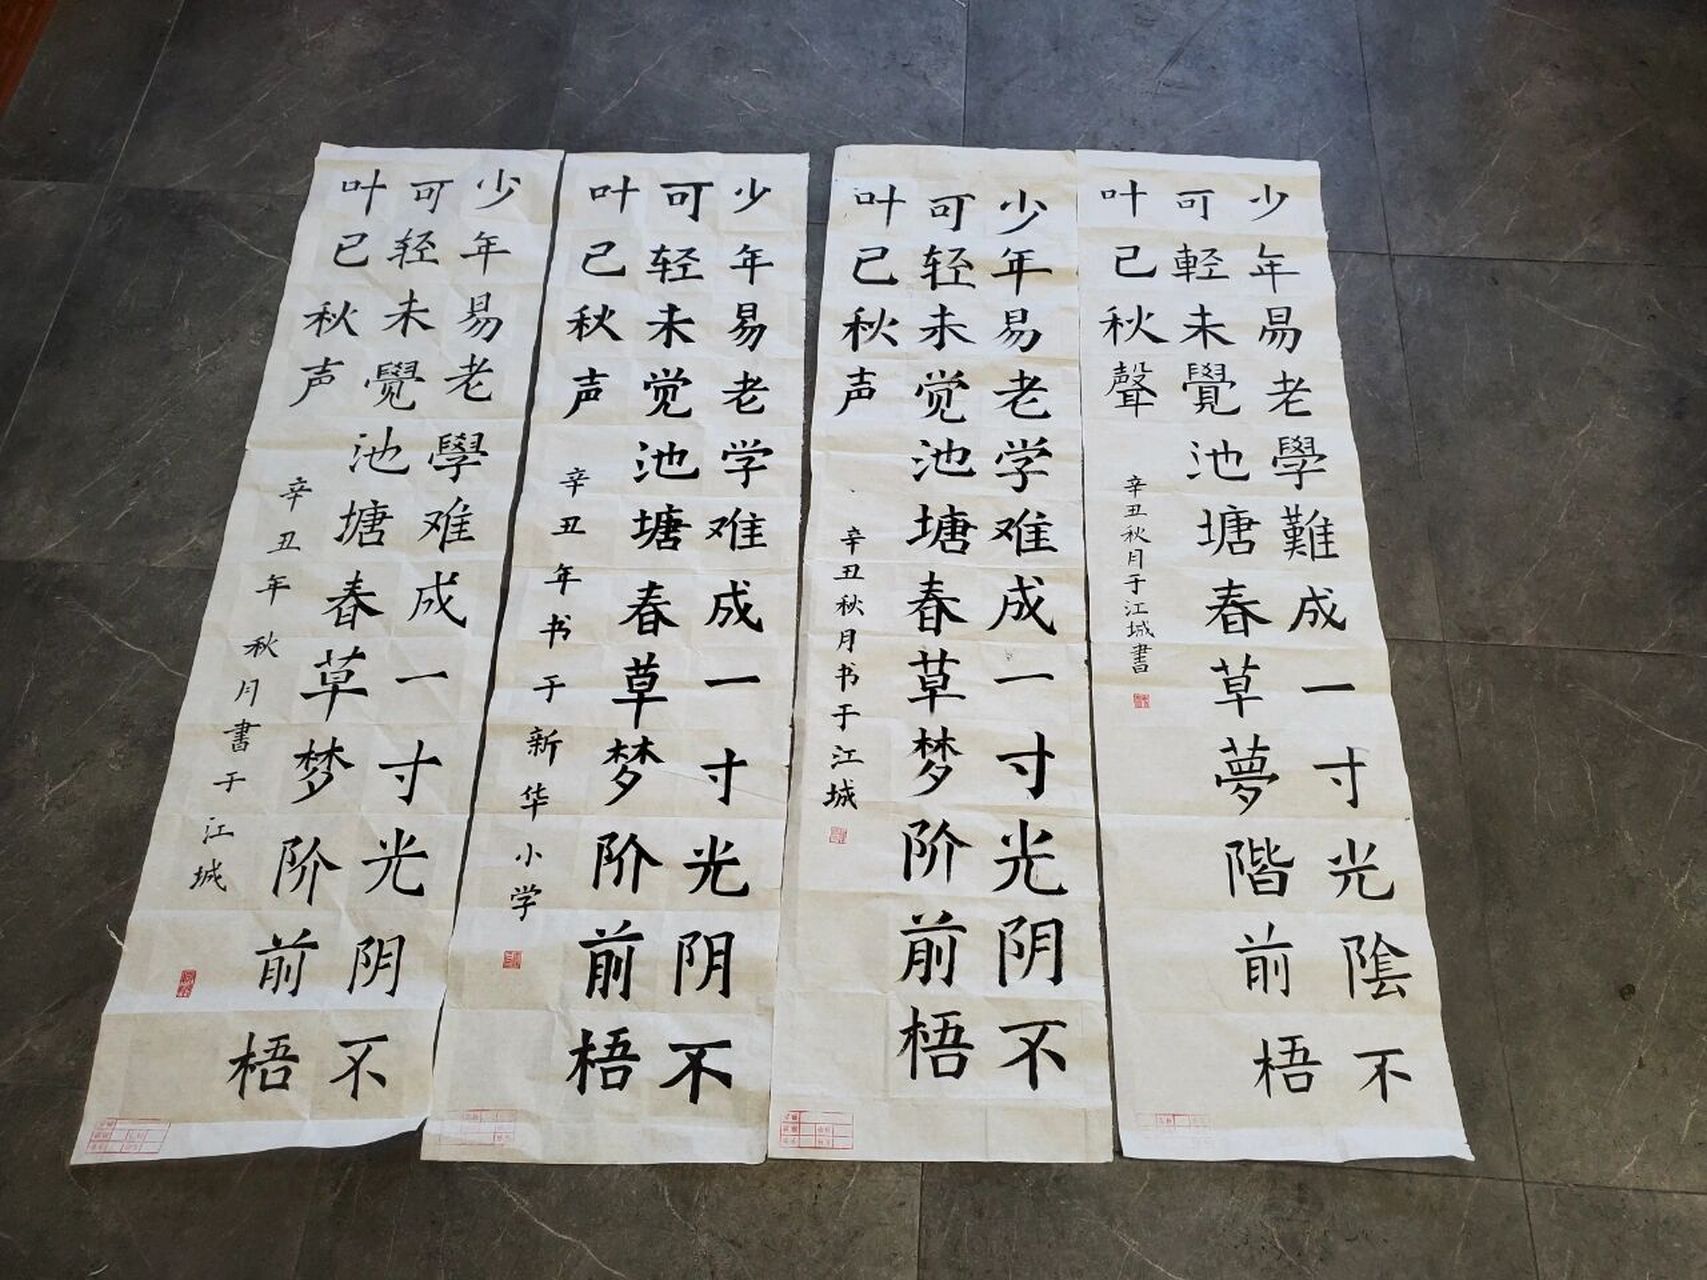 少年易老學難成一寸光陰不
可輕未覺池塘春草夢階前梧
叶己秋聲
辛丑秋月于江城書
少年易老学难成一寸光阴不
可轻未觉池塘春草梦阶前梧
叶己秋声
辛丑秋月书于江城
少年易老学难成一寸光阴不
可轻未觉池塘春草梦阶前梧
叶己秋声
辛丑年书于新华小学
少年易老學难成一寸光阴不
可轻未覺池塘春草梦阶前梧
叶已秋声
辛丑年秋月書于江城